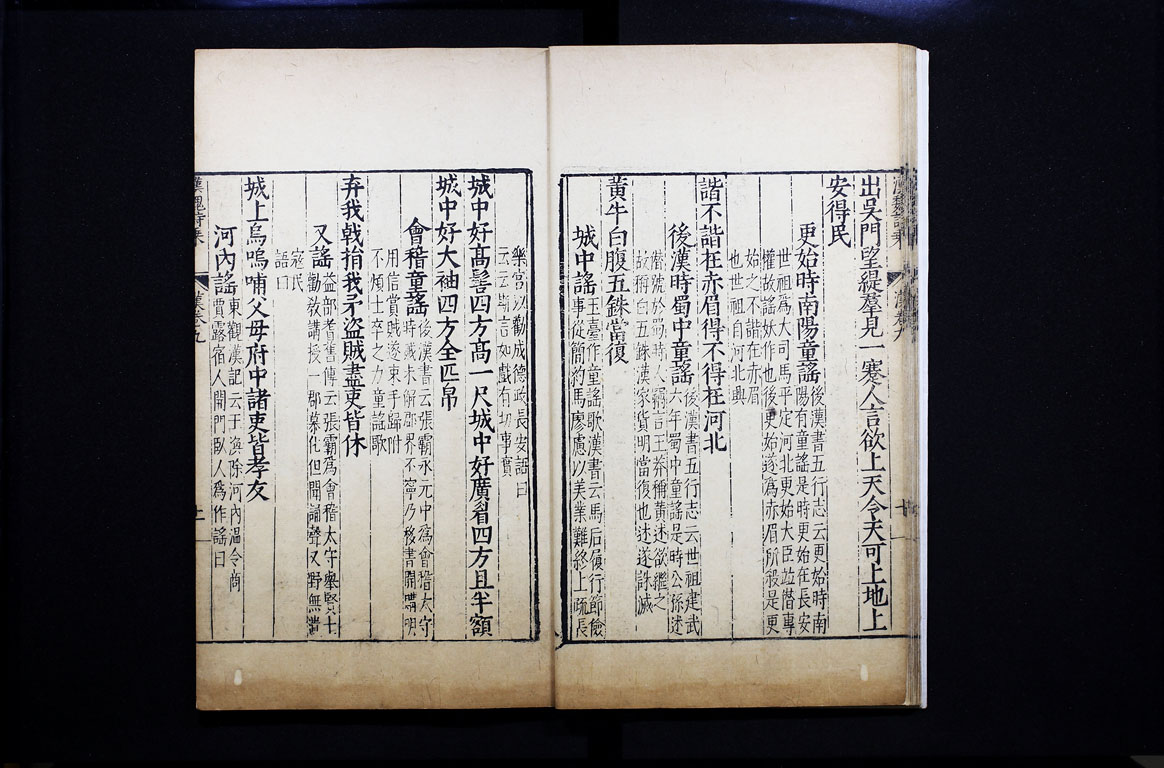 出吳門望緹羣見一蹇人言欲上天令天可上地上
安得民
更始時南陽童謠後漢書五行志云更始時南
陽有童謠是時更始在長安
世祖爲大司馬平定河北更始大臣竝僭專
權故謠妖作也後更始遂爲赤眉所殺是更
始之不諧在赤眉
也世祖自河北興
諧不諧在赤眉得不得在河北
後漢時蜀中童謠後漢書五行志云世祖建武
六年蜀中童謠是時公孫述
僭號於蜀時人竊言王莽稱黃述欲繼之
故稱白五銖漢家貨明當復也述遂誅滅
黃牛白腹五銖當復
城中謠王臺作童謠歌漢書云馬后履行節儉
事從簡約馬廖慮以美業難終上疏長
樂宮以勸成德政長安語曰
云云斯言如戲有切事實
城中好高髻四方高一尺城中好廣眉四方且半額
城中好大袖四方全匹帛
會稽童謠後漢書云張霸永元中爲會稽太守
時賊未解郡界不寧乃移書開購明
用信賞賊遂束手歸附
不煩士卒之力童謠歌
弃我戟捐我矛盜賊盡吏皆休
又謠益部耆舊傳云張霸爲會稽太守舉賢士
勸敎講授一郡慕化但聞誦聲又野無遺
寇民
語曰
城上烏鳴哺父母府中諸吏皆孝友
河內謠東觀漢記云于渙除河內溫令商
賈露宿人開門臥人爲作謠曰
漢卷九